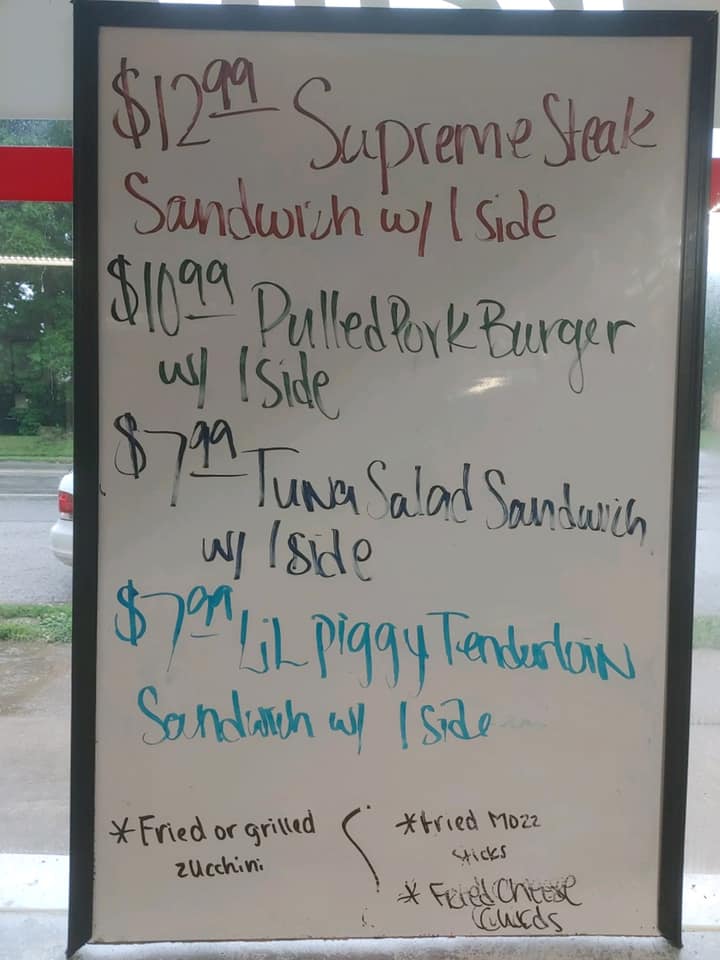 $12.99 Supreme Steak
Sandwich w/ 1 side
$10.99 Pulled Pork Burger
w/ 1 side
$7.99 Tuna Salad Sandwich
w/ 1 side
$7.99 Lil Piggy Tenderloin
Sandwich w/ 1 side
*Fried or grilled
zucchini
*fried Mozz
sticks
* Fried Cheese
Curds